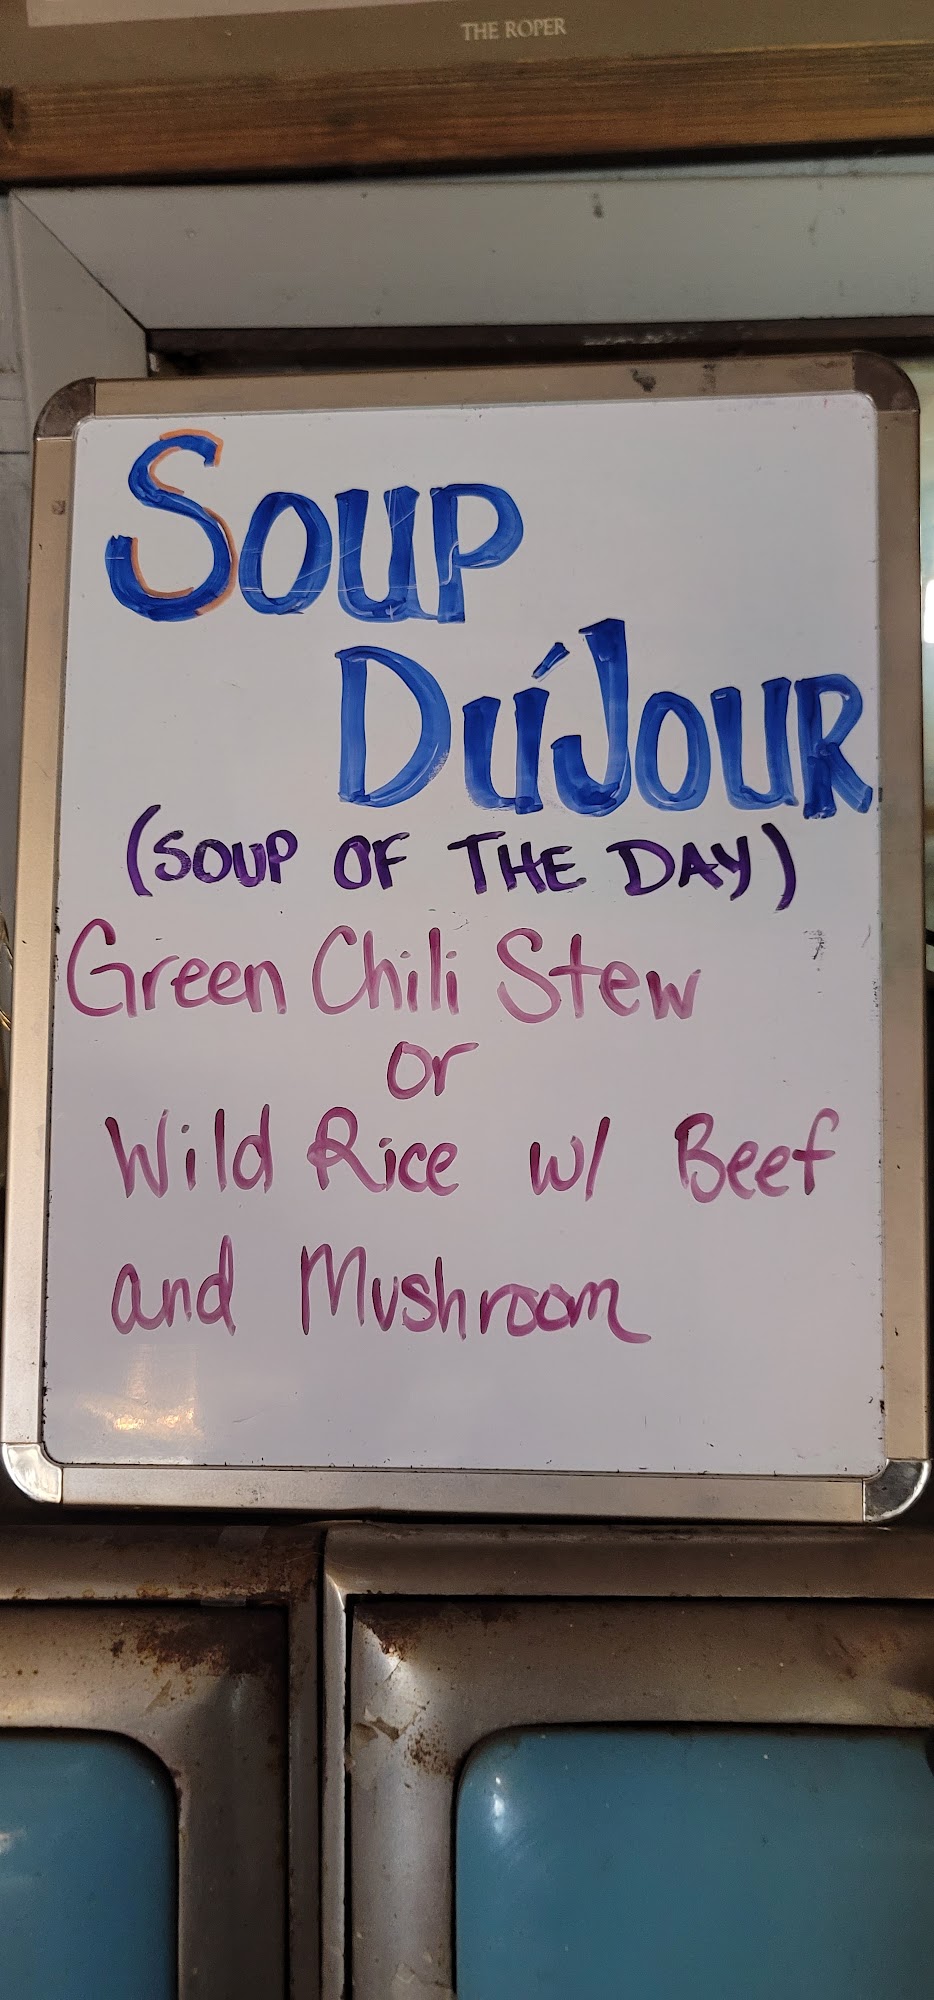 THE ROPER
SOUP
DúJOUR
(SOUP OF THE DAY)
Green Chili Stew
or
Wild Rice w/ Beef
and Mushroom